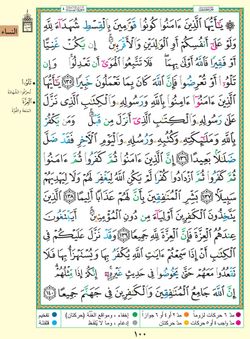 يَٰٓأَيُّهَا ٱلَّذِينَ ءَامَنُوا۟ كُونُوا۟ قَوَّٰمِينَ بِٱلْقِسْطِ شُهَدَآءَ لِلَّهِ
وَلَوْ عَلَىٰٓ أَنفُسِكُمْ أَوِ ٱلْوَٰلِدَيْنِ وَٱلْأَقْرَبِينَ ۚ إِن يَكُنْ غَنِيًّا
أَوْ فَقِيرًا فَٱللَّهُ أَوْلَىٰ بِهِمَا ۖ فَلَا تَتَّبِعُوا۟ ٱلْهَوَىٰٓ أَن تَعْدِلُوا۟ ۚ
وَإِن تَلْوُۥٓا۟ أَوْ تُعْرِضُوا۟ فَإِنَّ ٱللَّهَ كَانَ بِمَا تَعْمَلُونَ خَبِيرًا ١٣٥ يَٰٓأَيُّهَا
ٱلَّذِينَ ءَامَنُوٓا۟ ءَامِنُوا۟ بِٱللَّهِ وَرَسُولِهِۦ وَٱلْكِتَٰبِ ٱلَّذِى نَزَّلَ
عَلَىٰ رَسُولِهِۦ وَٱلْكِتَٰبِ ٱلَّذِىٓ أَنزَلَ مِن قَبْلُ ۚ وَمَن يَكْفُرْ
بِٱللَّهِ وَمَلَٰٓئِكَتِهِۦ وَكُتُبِهِۦ وَرُسُلِهِۦ وَٱلْيَوْمِ ٱلْءَاخِرِ فَقَدْ ضَلَّ
ضَلَٰلًۢا بَعِيدًا ١٣٦ إِنَّ ٱلَّذِينَ ءَامَنُوا۟ ثُمَّ كَفَرُوا۟ ثُمَّ ءَامَنُوا۟
ثُمَّ كَفَرُوا۟ ثُمَّ ٱزْدَادُوا۟ كُفْرًا لَّمْ يَكُنِ ٱللَّهُ لِيَغْفِرَ لَهُمْ وَلَا لِيَهْدِيَهُمْ
سَبِيلًۢا ١٣٧ بَشِّرِ ٱلْمُنَٰفِقِينَ بِأَنَّ لَهُمْ عَذَابًا أَلِيمًا ١٣٨ ٱلَّذِينَ
يَتَّخِذُونَ ٱلْكَٰفِرِينَ أَوْلِيَآءَ مِن دُونِ ٱلْمُؤْمِنِينَ ۚ أَيَبْتَغُونَ
عِندَهُمُ ٱلْعِزَّةَ فَإِنَّ ٱلْعِزَّةَ لِلَّهِ جَمِيعًا ١٣٩ وَقَدْ نَزَّلَ عَلَيْكُمْ فِى
ٱلْكِتَٰبِ أَنْ إِذَا سَمِعْتُمْ ءَايَٰتِ ٱللَّهِ يُكْفَرُ بِهَا وَيُسْتَهْزَأُ بِهَا فَلَا
تَقْعُدُوا۟ مَعَهُمْ حَتَّىٰ يَخُوضُوا۟ فِى حَدِيثٍ غَيْرِهِۦٓ ۚ إِنَّكُمْ إِذًا مِّثْلُهُمْ ۗ
إِنَّ ٱللَّهَ جَامِعُ ٱلْمُنَٰفِقِينَ وَٱلْكَٰفِرِينَ فِى جَهَنَّمَ جَمِيعًا ١٤٠
١٠٠